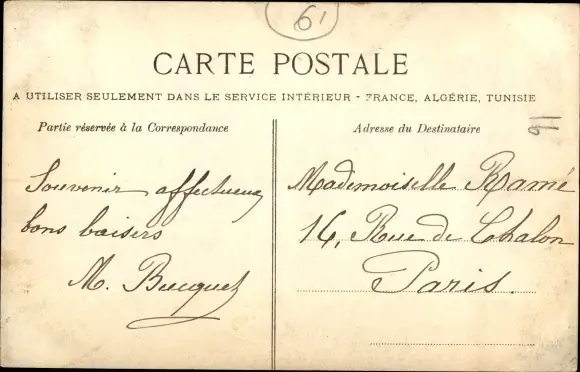 61
CARTE POSTALE
A UTILISER SEULEMENT DANS LE SERVICE INTÉRIEUR - FRANCE, ALGÉRIE, TUNISIE
Partie réservée à la Correspondance
Adresse du Destinataire
Souvenir affectueux
bons baisers
M. Bucquet
Mademoiselle Ramé
16, Rue de Chalon
Paris.